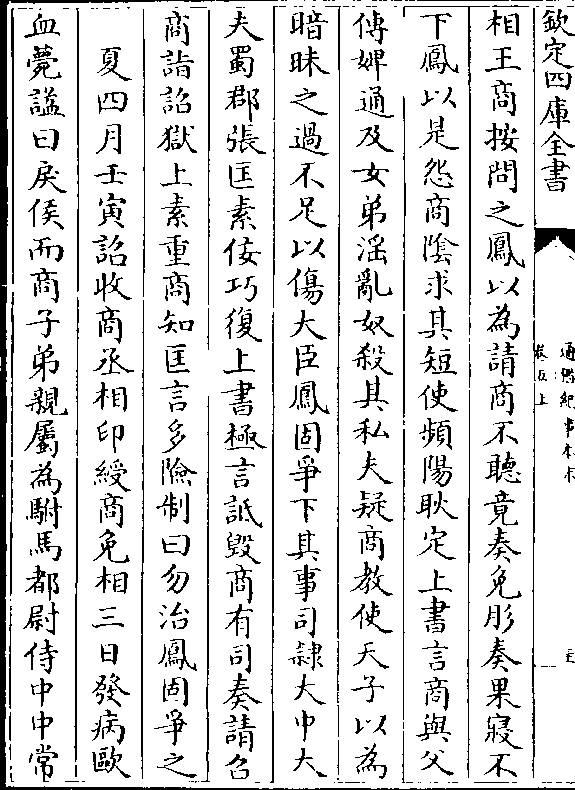 欽定四庫全書
通鑑紀事本末
卷五上
相王商按問之鳳以為請商不聽竟奏免彤奏果寢不
下鳳以是怨商隂求其短使頻陽耿定上書言商與父
傅婢通及女弟滛亂奴殺其私夫疑商教使天子以為
暗昧之過不足以傷大臣鳳固爭下其事司隸大中大
夫蜀郡張匡素佞巧復上書極言詆毀商有司奏請召
商詣詔獄上素重商知匡言多險制曰勿治鳳固爭之
夏四月壬寅詔收商丞相印綬商免相三日發病歐
血薨諡曰戾侯而商子弟親屬為駙馬都尉侍中中常